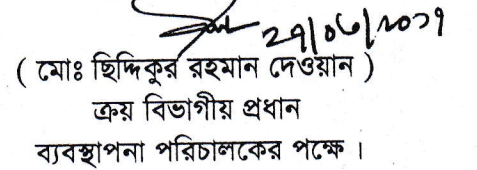 ২৭/০৬/২০২১
( মোঃ ছিদ্দিকুর রহমান দেওয়ান )
ক্রয় বিভাগীয় প্রধান
ব্যবস্থাপনা পরিচালকের পক্ষে ।